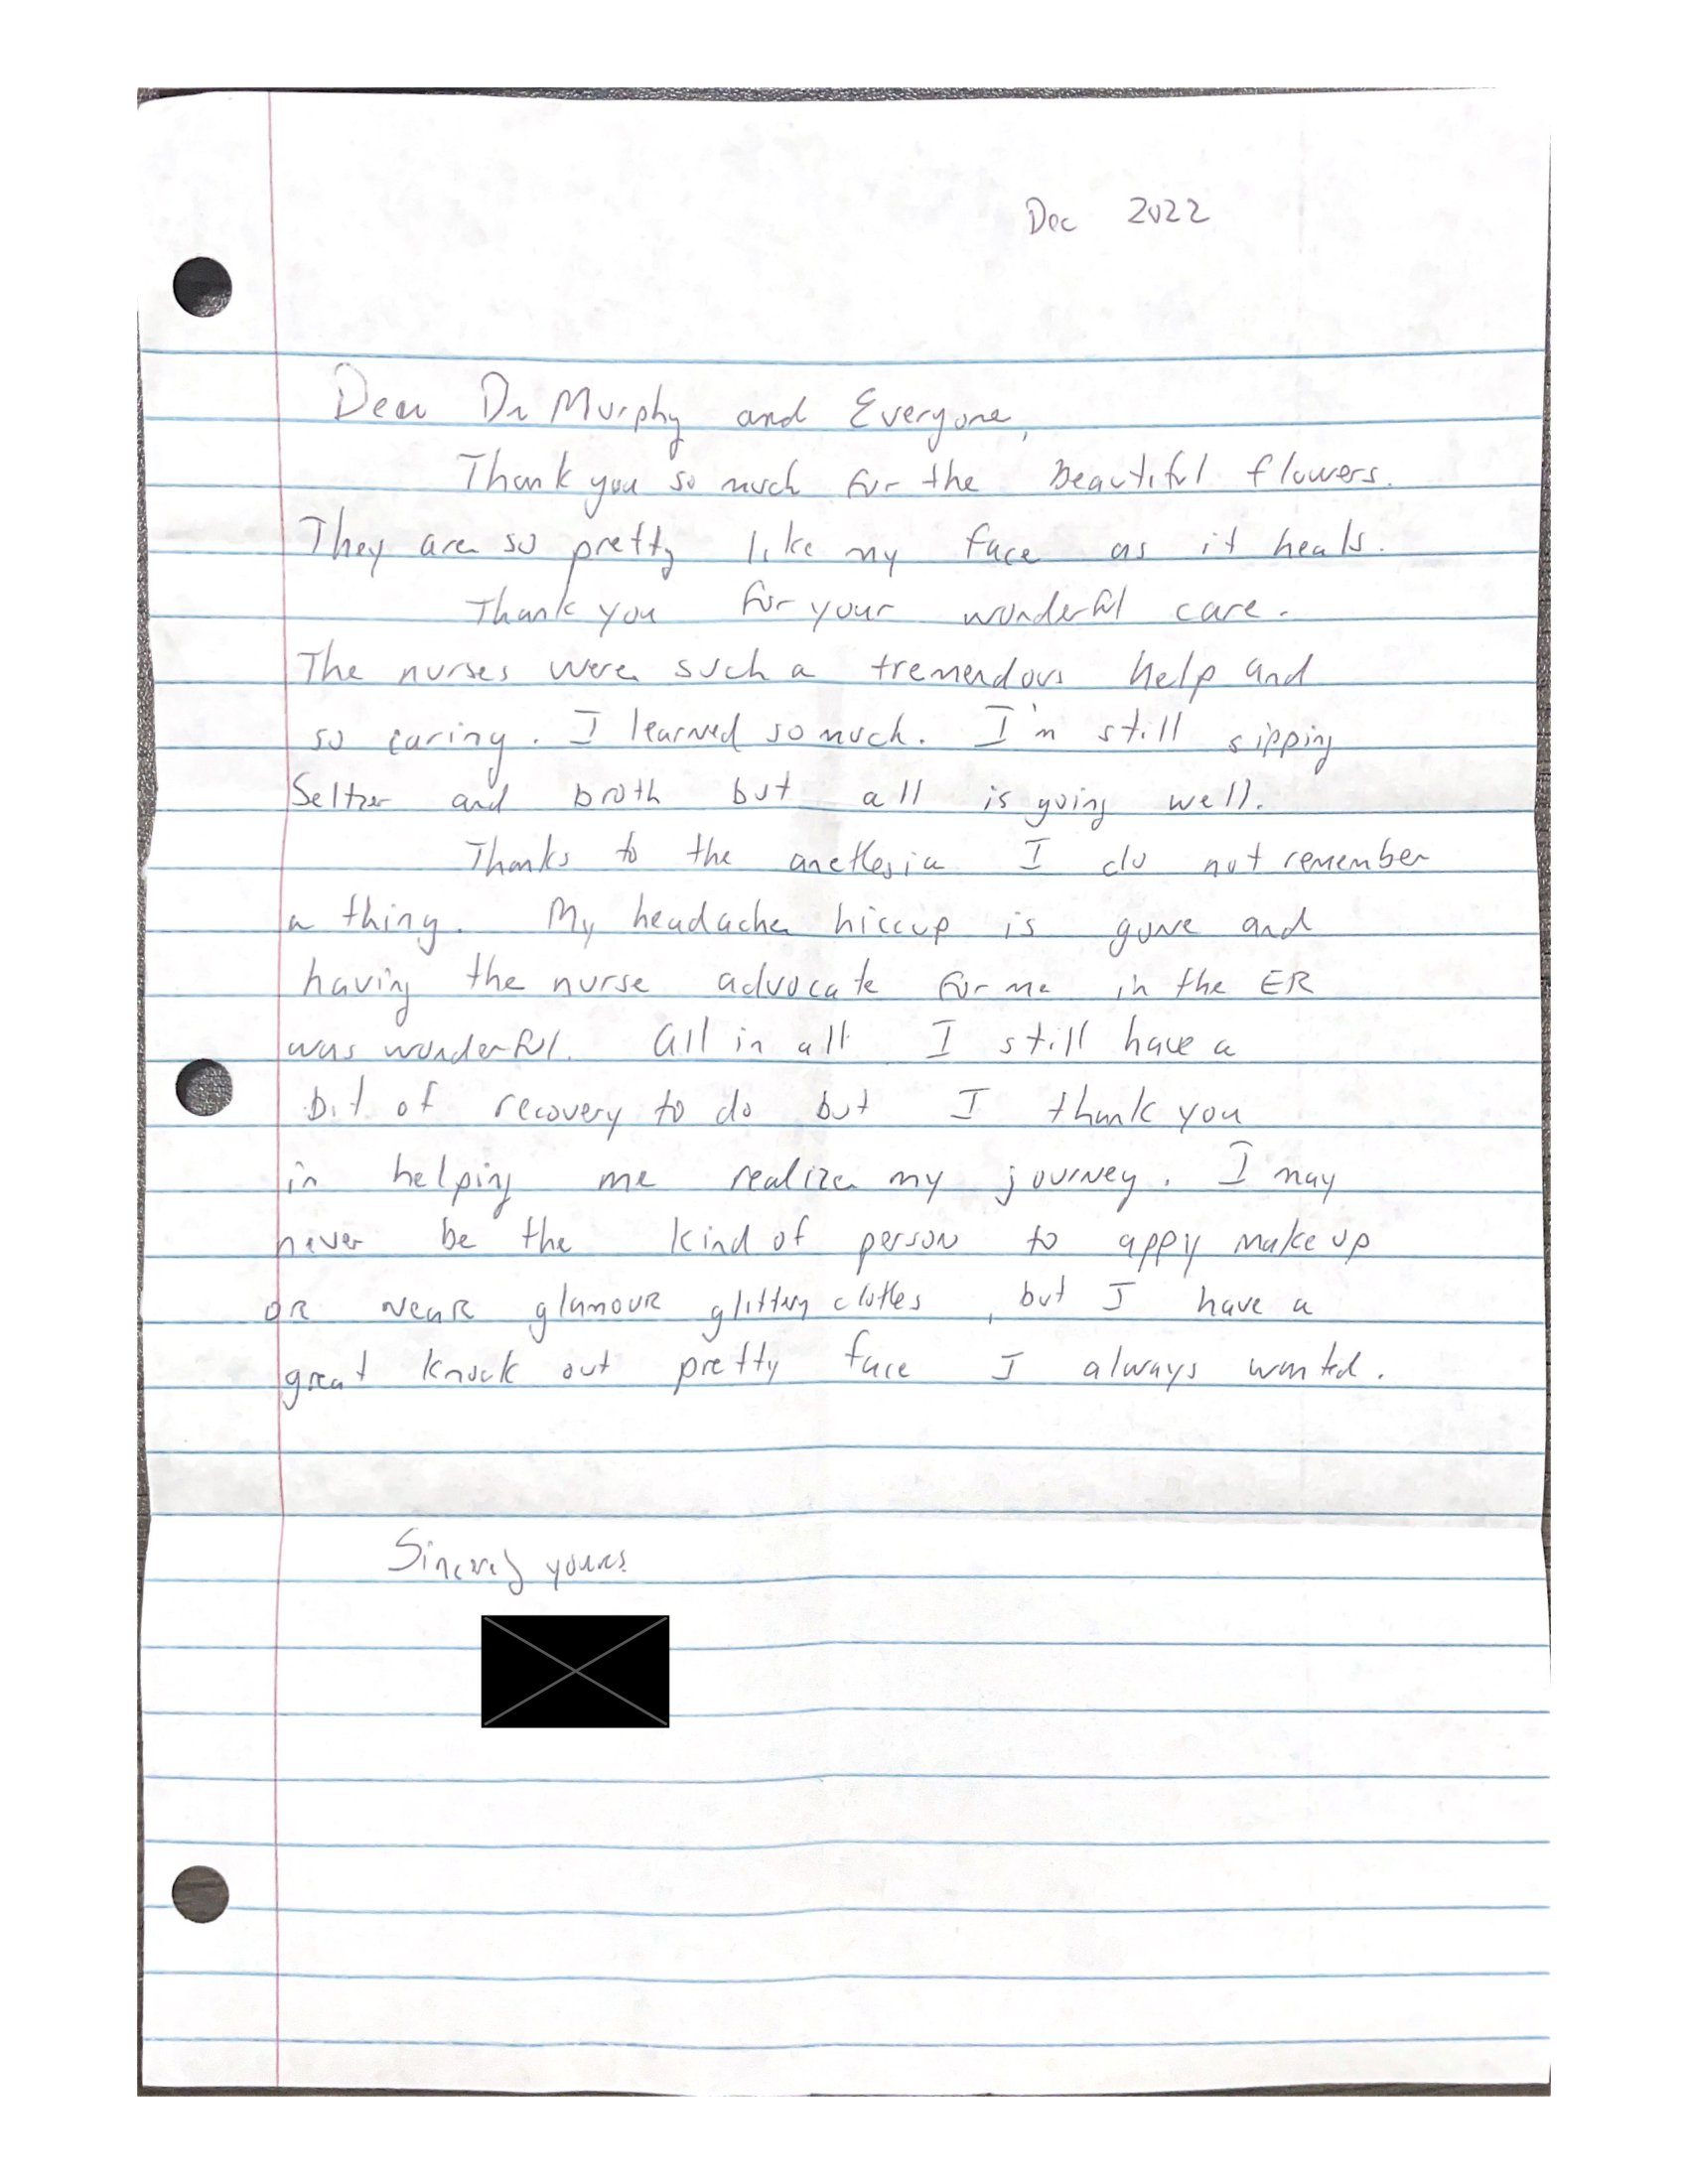 Dec 2022
Dear Dr Murphy and Everyone,
Thank you so much for the beautiful flowers.
They are so pretty like my face as it heals.
Thank you for your wonderful care.
The nurses were such a tremendous help and
so caring. I learned so much. I'm still sipping
Seltzer and broth but all is going well.
Thanks to the anethesia I do not remember
a thing. My headache hiccup is gone and
having the nurse advocate for me in the ER
was wonderful. All in all I still have a
bit of recovery to do but I thank you
in helping me realize my journey. I may
never be the kind of person to appy make up
OR weaR glamouR glittery clothes, but I have a
great knock out pretty face I always wanted.
Sincerely yours